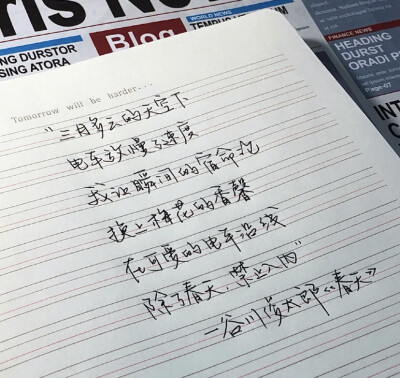 WORLD NEWS
Blog
FINANCE NEWS
HEADING
DURST
Page-07
Tomorrow will be harder...
"三月多云的天空下
电车放慢了速度
我让瞬间的宿命论
换上梅花的香馨
在可爱的电车沿线
除了春天,禁止入内"
—谷川俊太郎《春天》